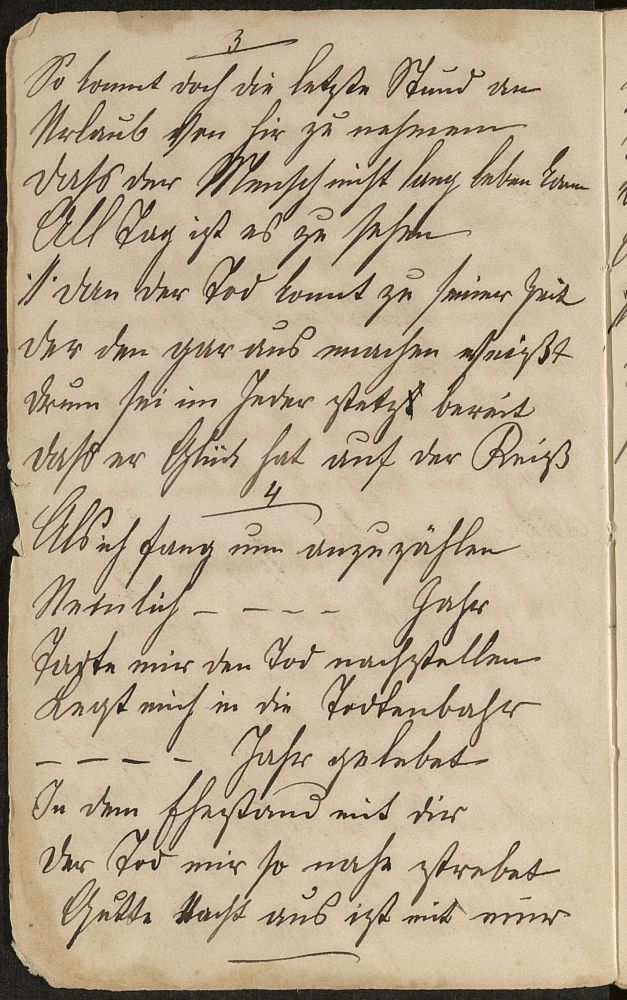 3
So komt doch die letzte Stund an
Urlaub von hir zu nehmen
Dass der Mensch nicht lang leben kann
All Tag ist es zu sehen
dan der Tod komt zu seiner Zeit
der den garaus machen weißt
drum sei im Jeder stetzt bereit
dass er Glück hat auf der Reiß
4
Als ich fang nun anzuzählen
Nemlich – – – – Jahr
Taste mir den Tod nachstellen
Legt mich in die Todtenbahr
– – – – Jahr gelebet
In dem Ehestand mit dir
Der Tod mir so nahe strebet
Gutte Nacht aus ist mit mir